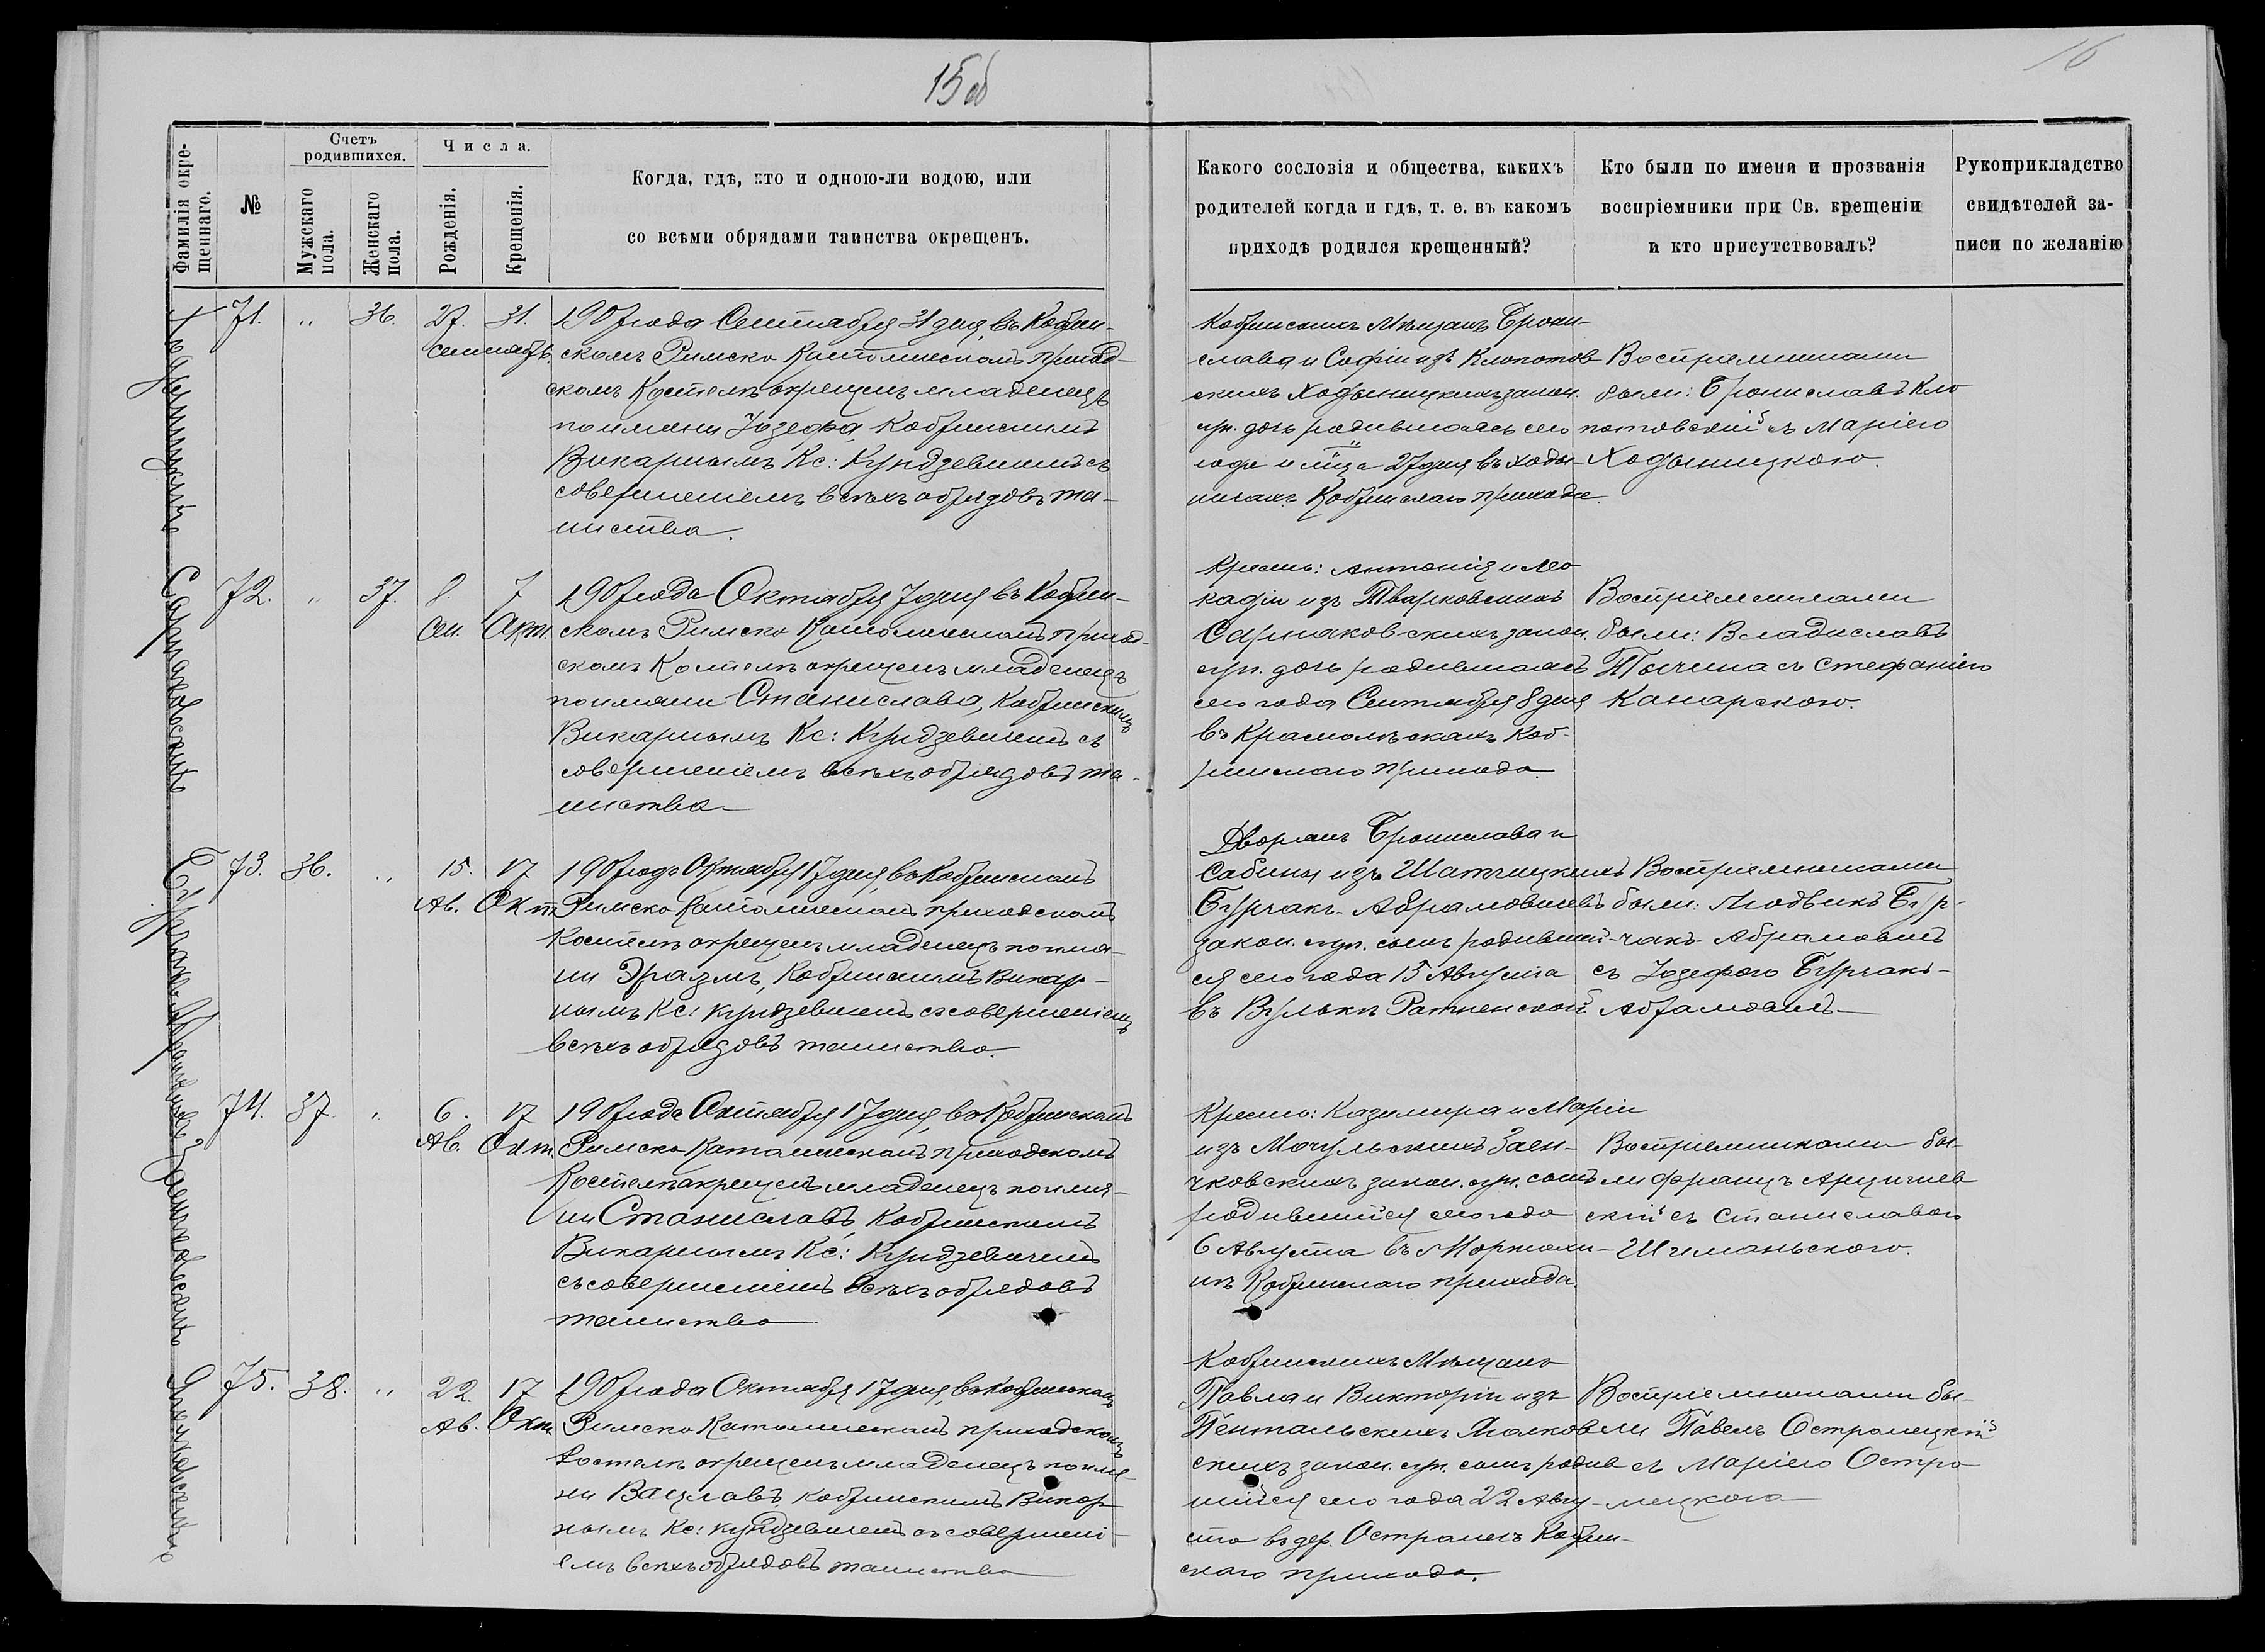 15об
16
Фамилія окре-
щеннаго.
№
Счетъ
родившихся.
Мужскаго
пола.
Женскаго
пола.
Числа.
Рожденія.
Крещенія.
Когда, гдѣ, кто и одною-ли водою, или
со всѣми обрядами таинства окрещенъ.
Какого сословія и общества, какихъ
родителей когда и гдѣ, т. е. въ какомъ
приходѣ родился крещенный?
Кто были по имени и прозванія
воспріемники при Св. крещеніи
и кто присутствовалъ?
Рукоприкладство
свидѣтелей за-
писи по желанію
71. " 36. 27. 31.
сентябрь
1907 года Сентября 31 дня, въ Кобрин-
скомъ Римско Католическомъ приход-
скомъ Костелѣ окрещенъ младенецъ
по имени Іозефа, Кобринскимъ
Викарнымъ Кс: Кундзевичемъ съ
совершеніемъ всѣхъ обрядовъ та-
инства.
Кобринскихъ Мѣщанъ Брони-
слава и Софіи изъ Клопотов
скихъ Ходыницкихъ закон.
суп. дочь родившаяся сего
года и м-ца 27 дня въ Ходы-
ничахъ Кобринскаго прихода.
Воспріемниками
были: Брониславъ Кло
потовскій съ Маріею
Ходыницкою.
Сарнаковская
72. " 37. 8. 7
Сен. Окт.
1907 года Октября 7 дня въ Кобрин-
скомъ Римско Католическомъ приход-
скомъ Костелѣ окрещенъ младенецъ
по имени Станислава, Кобринскимъ
Викарнымъ Кс: Кундзевичемъ съ
совершеніемъ всѣхъ обрядовъ та-
инства
Крестьн: Антонія и Лео
кадіи изъ Тварковскихъ
Сарнаковскихъ закон.
суп. дочь родившаяся
сего года Сентября 8 дня
въ Коб-
ринскаго прихода.
Воспріемниками
были: Владиславъ
Тычина съ Стефаніею
Канарскою.
73. 36. " 15. 17
Ав. Окт.
1907 года Октября 17 дня, въ Кобринскомъ
Римско Католическомъ приходскомъ
Костелѣ окрещенъ младенецъ по име-
ни Эразмъ, Кобринскимъ Викар-
нымъ Кс: Кундзевичемъ съ совершеніемъ
всѣхъ обрядовъ таинства.
Дворянъ Бронислава и
Сабины изъ Шатицкихъ
Бурчакъ-Абрамовичевъ
закон. суп. сынъ родивший-
ся сего года 15 Августа
въ Вулькѣ Ратненской.
Воспріемниками
были: Людвикъ Бур-
чакъ-Абрамовичъ
съ Іозефою Бурчакъ-
Абрамовичъ
74. 37. " 6. 17
Ав. Окт.
1907 года Октября 17 дня, въ Кобринскомъ
Римско Католическомъ приходскомъ
Костелѣ окрещенъ младенецъ по име-
ни Станиславъ, Кобринскимъ
Викарнымъ Кс: Кундзевичемъ
съ совершеніемъ всѣхъ обрядовъ
таинства
Крестьн: Казимира и Маріи
изъ Мочульскихъ Заен-
чковскихъ закон. суп. сынъ
родившійся сего года
6 Августа въ
Кобринскаго прихода.
Воспріемниками бы-
ли Францъ Арцишев
скій съ Станиславою
Шиманьскою.
75. 38. " 22 17
Ав. Окт.
1907 года Октября 17 дня, въ Кобринскомъ
Римско Католическомъ приходскомъ
Костелѣ окрещенъ младенецъ по име-
ни Вацлавъ, Кобринскимъ Викар
нымъ Кс: Кундзевичемъ съ совершені-
емъ всѣхъ обрядовъ таинства
Кобринскихъ Мѣщанъ
Павла и Викторіи изъ
Пентальскихъ
скихъ закон. суп. сынъ родив
шійся сего года 22 Авгу-
ста въ дер. Кобрин-
скаго прихода.
Воспріемниками бы-
ли Павелъ Остромецкій
съ Маріею Остро
мецкою